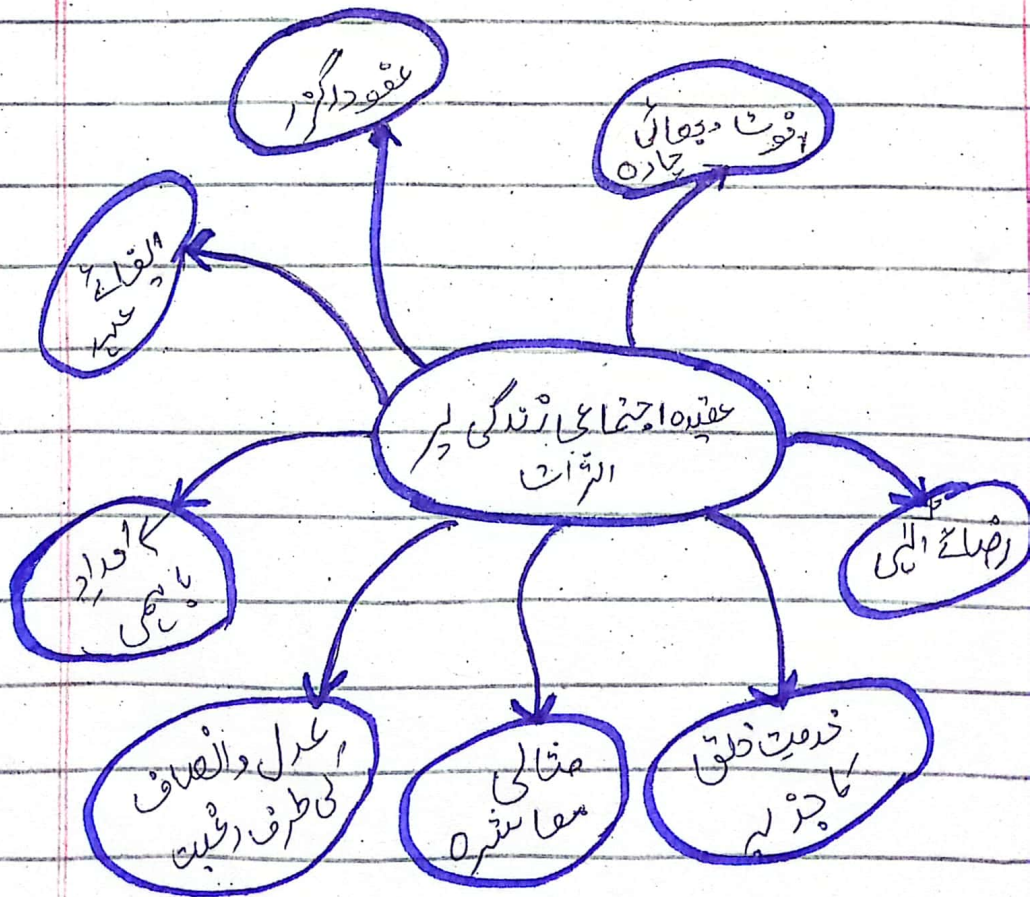 عفو و درگزر
اخوت و بھائی
چارہ
ایفائے
عہد
عقیدہ اجتماعی زندگی پر
اثرات
رضائے الہی
امداد
باہمی
عدل و انصاف
کی طرف رغبت
مثالی
معاشرہ
خدمت خلق
کا جذبہ